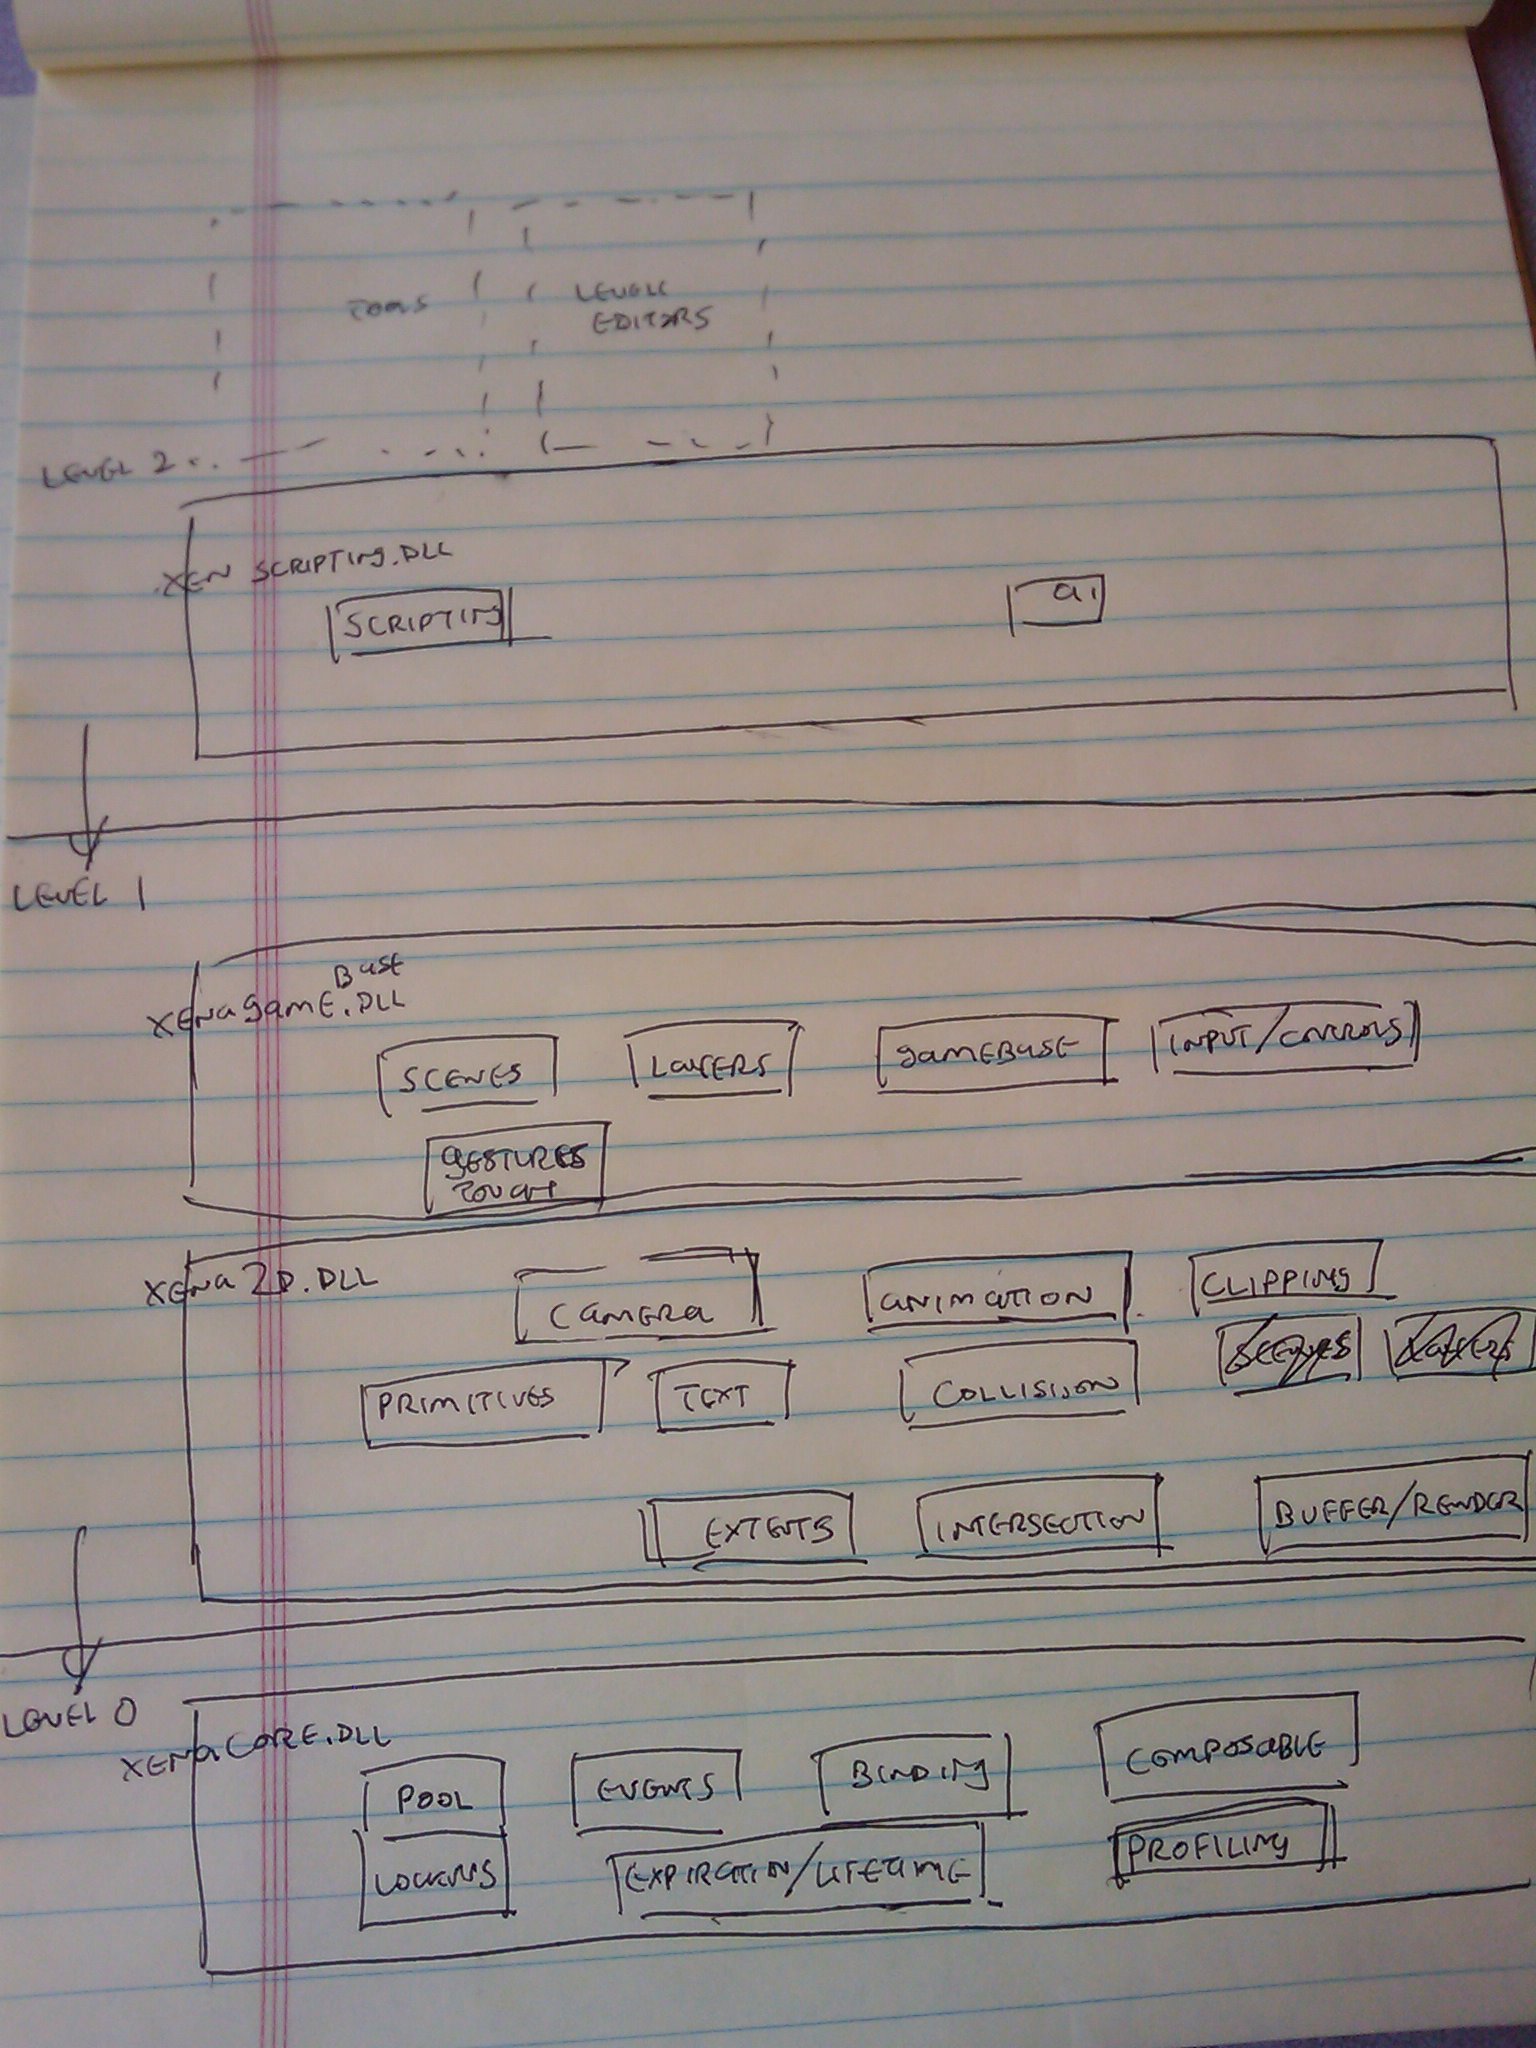 TOOLS
LEVEL
EDITORS
LEVEL 2
XEN SCRIPTING.DLL
SCRIPTING
ai
LEVEL 1
Base
XENagamE.DLL
SCENES
LayERS
gamEBasE
INPUT/CONTROLS
gESTURES
TOUCH
XENa2D.DLL
CamERa
aNIMaTION
CLIPPINg
SCENES
LayERS
PRIMITIVES
TEXT
COLLISION
EXTENTS
INTERSECTION
BUFFER/RENDER
LEVEL 0
XENaCORE.DLL
POOL
EVENTS
BINDINg
COMPOSaBLE
LOCKINg
EXPIRaTION/LIFETIME
PROFILINg